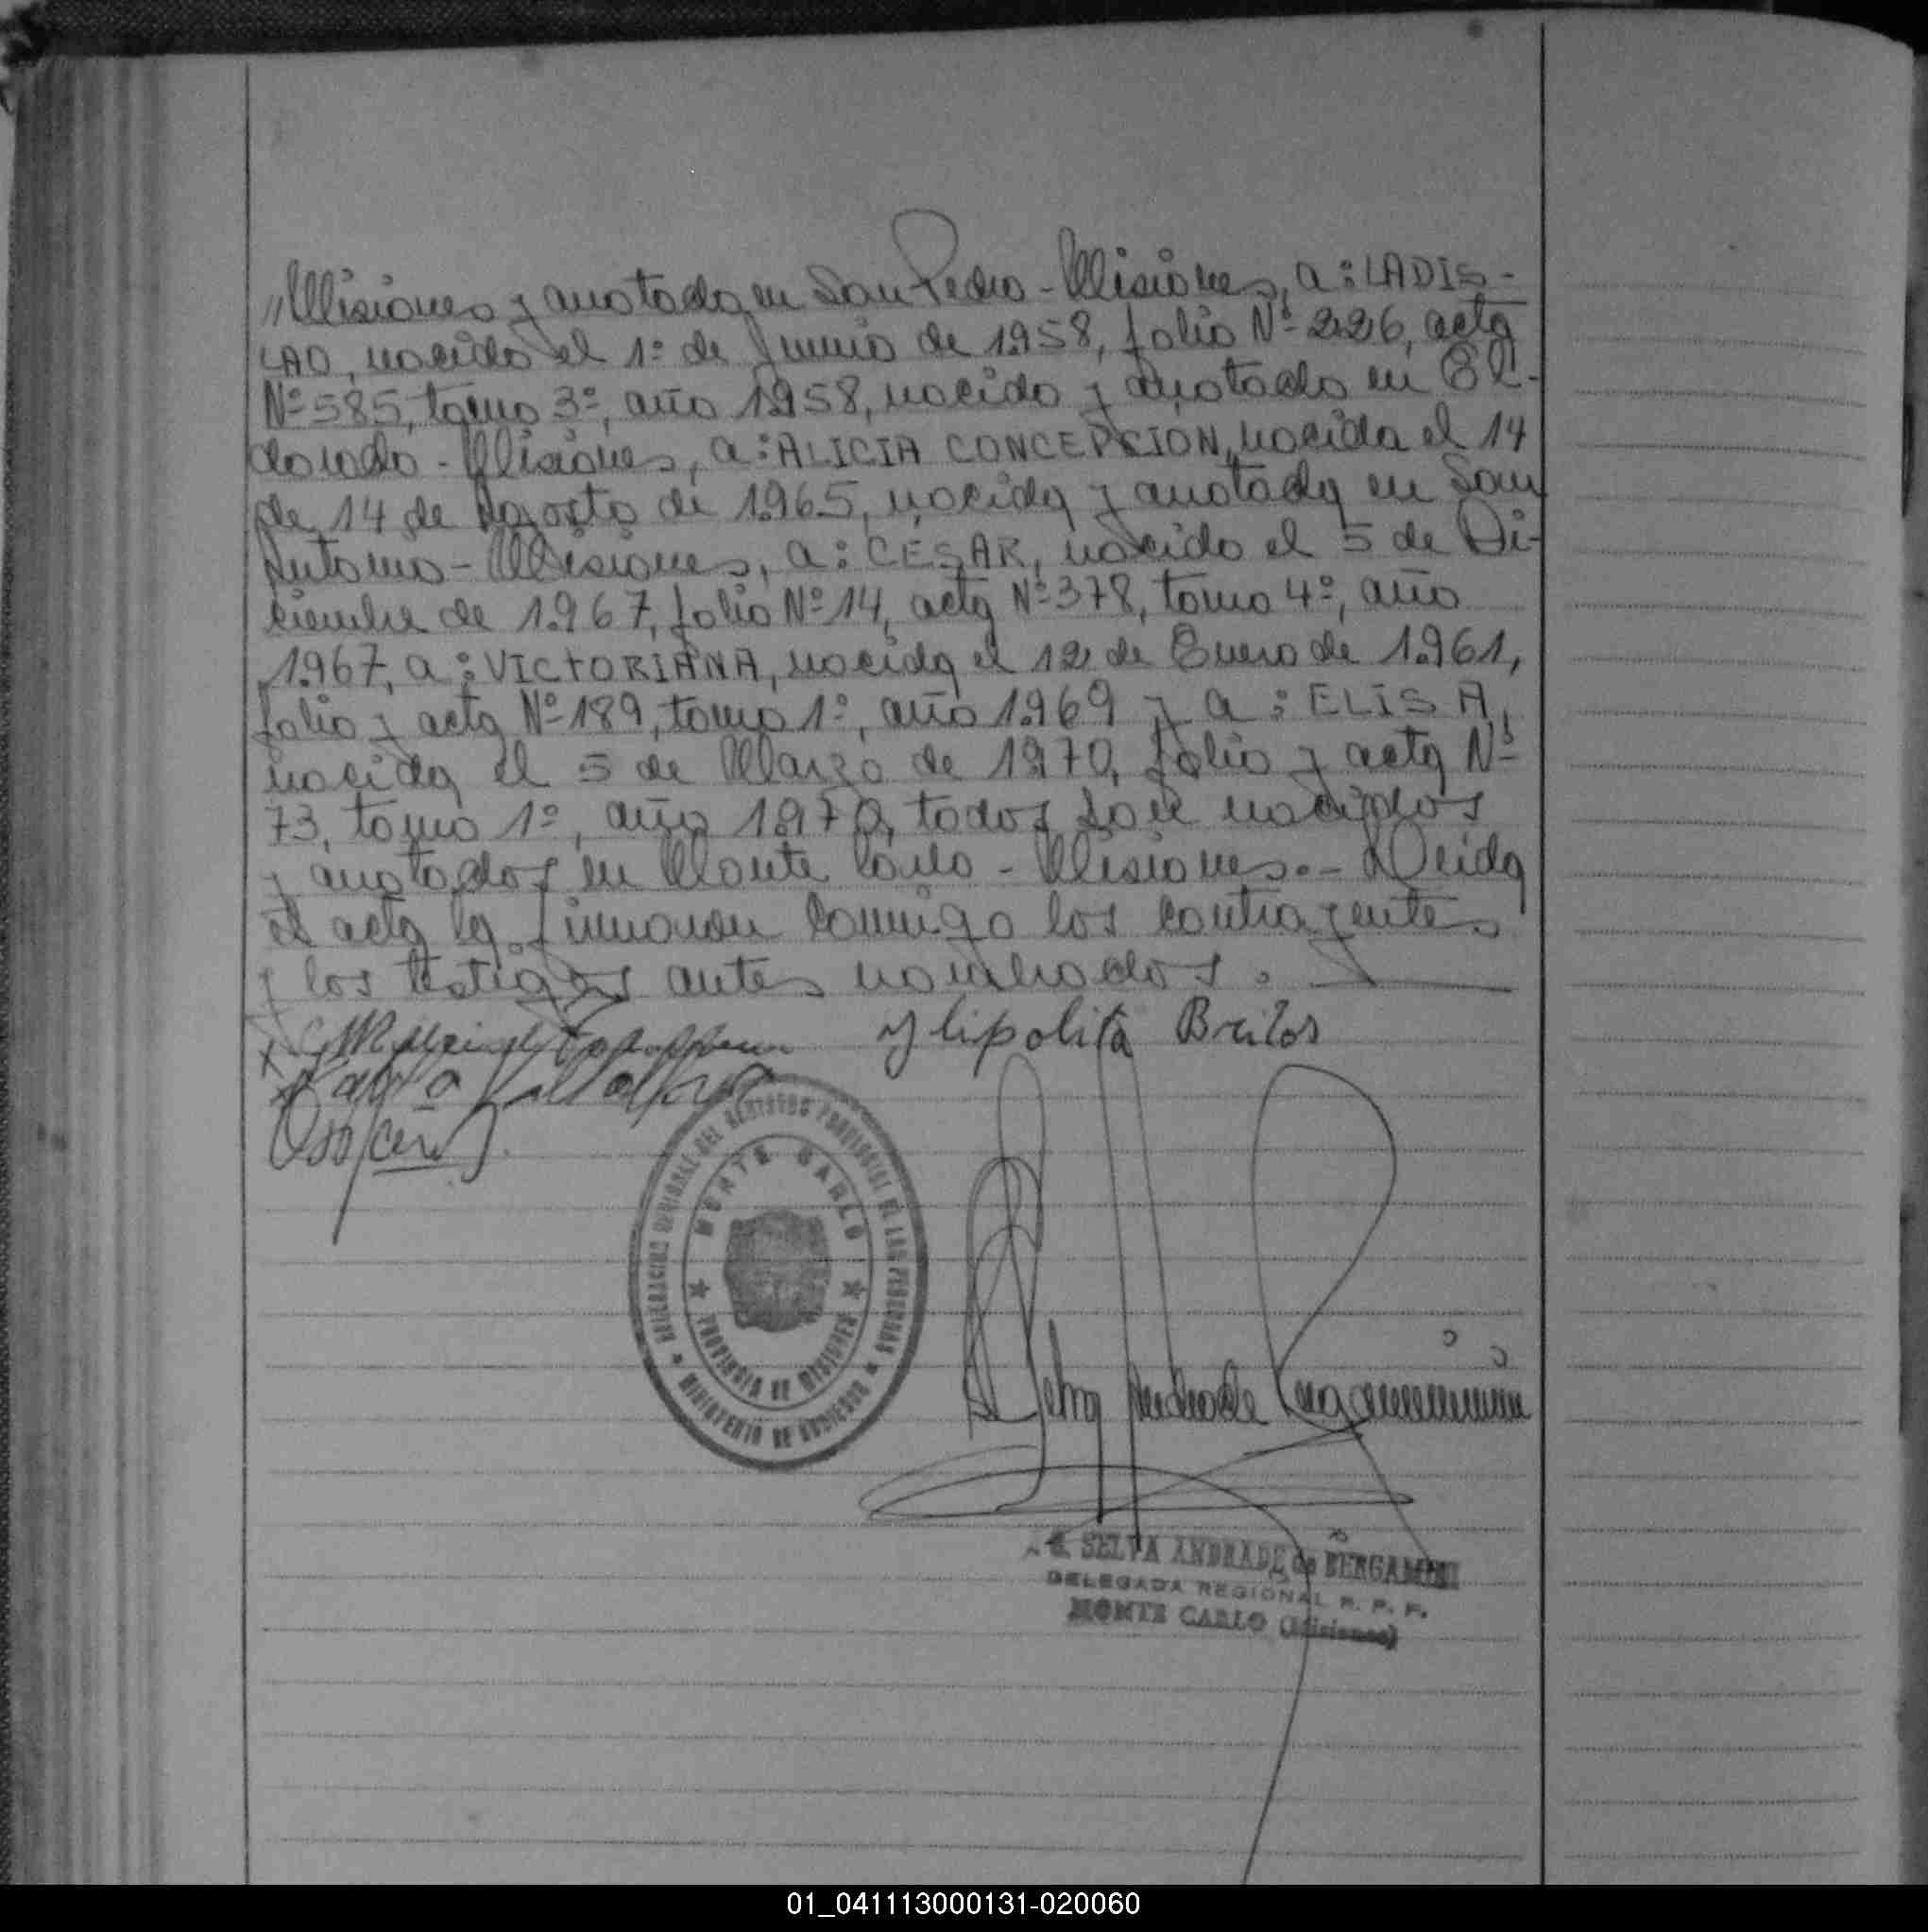 "Misiones y anotada en San Pedro - Misiones, a: LADIS-
LAO, nacido el 1º de Junio de 1.958, folio Nº 226, acta
Nº 585, tomo 3º, año 1.958, nacido y anotado en El-
dorado - Misiones, a: ALICIA CONCEPCION, nacida el 14
de 14 de Agosto de 1.965, nacida y anotada en San
Antonio - Misiones, a: CESAR, nacido el 5 de Di-
ciembre de 1.967, folio Nº 14, acta Nº 378, tomo 4º, año
1.967, a: VICTORIANA, nacida el 12 de Enero de 1.961,
folio y acta Nº 189, tomo 1º, año 1.969 y a: ELISA,
nacida el 5 de Marzo de 1.970, folio y acta Nº
73, tomo 1º, año 1.970, todos son nacidos
y anotados en Monte Carlo - Misiones.- Leida
el acta la firmaron conmigo los contrayentes
y los testigos antes nombrados.
x
Ylipolita Britos
Selva Andrade Bergamini
DELEGACION REGIONAL DEL REGISTRO PROVINCIAL DE LAS PERSONAS
MINISTERIO DE GOBIERNO
MONTE CARLO
PROVINCIA DE MISIONES
SELVA ANDRADE de BERGAMINI
DELEGADA REGIONAL R. P. P.
MONTE CARLO (Misiones)
01_041113000131-020060